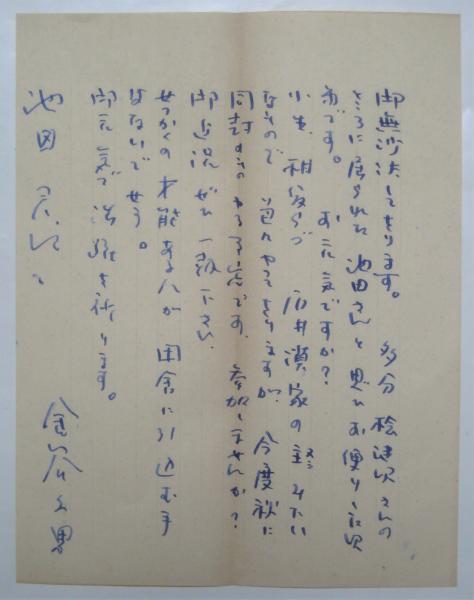 御無沙汰してをります。 多分 桧健次さんの
ところに居られた 池田さんと思ひお便りした次
第です。 お元気ですか？
小生 相変らず 石井漠家の主(ヌシ)みたい
なもので 一人やつてをりますが、 今度秋に
やる予定です。 参加しませんか？
御近況 ぜひ 一報下さい。
せつかくの才能ある人が 田舎に引込む手
はないでせう。
御元気で 活躍を祈ります。
池田
金谷